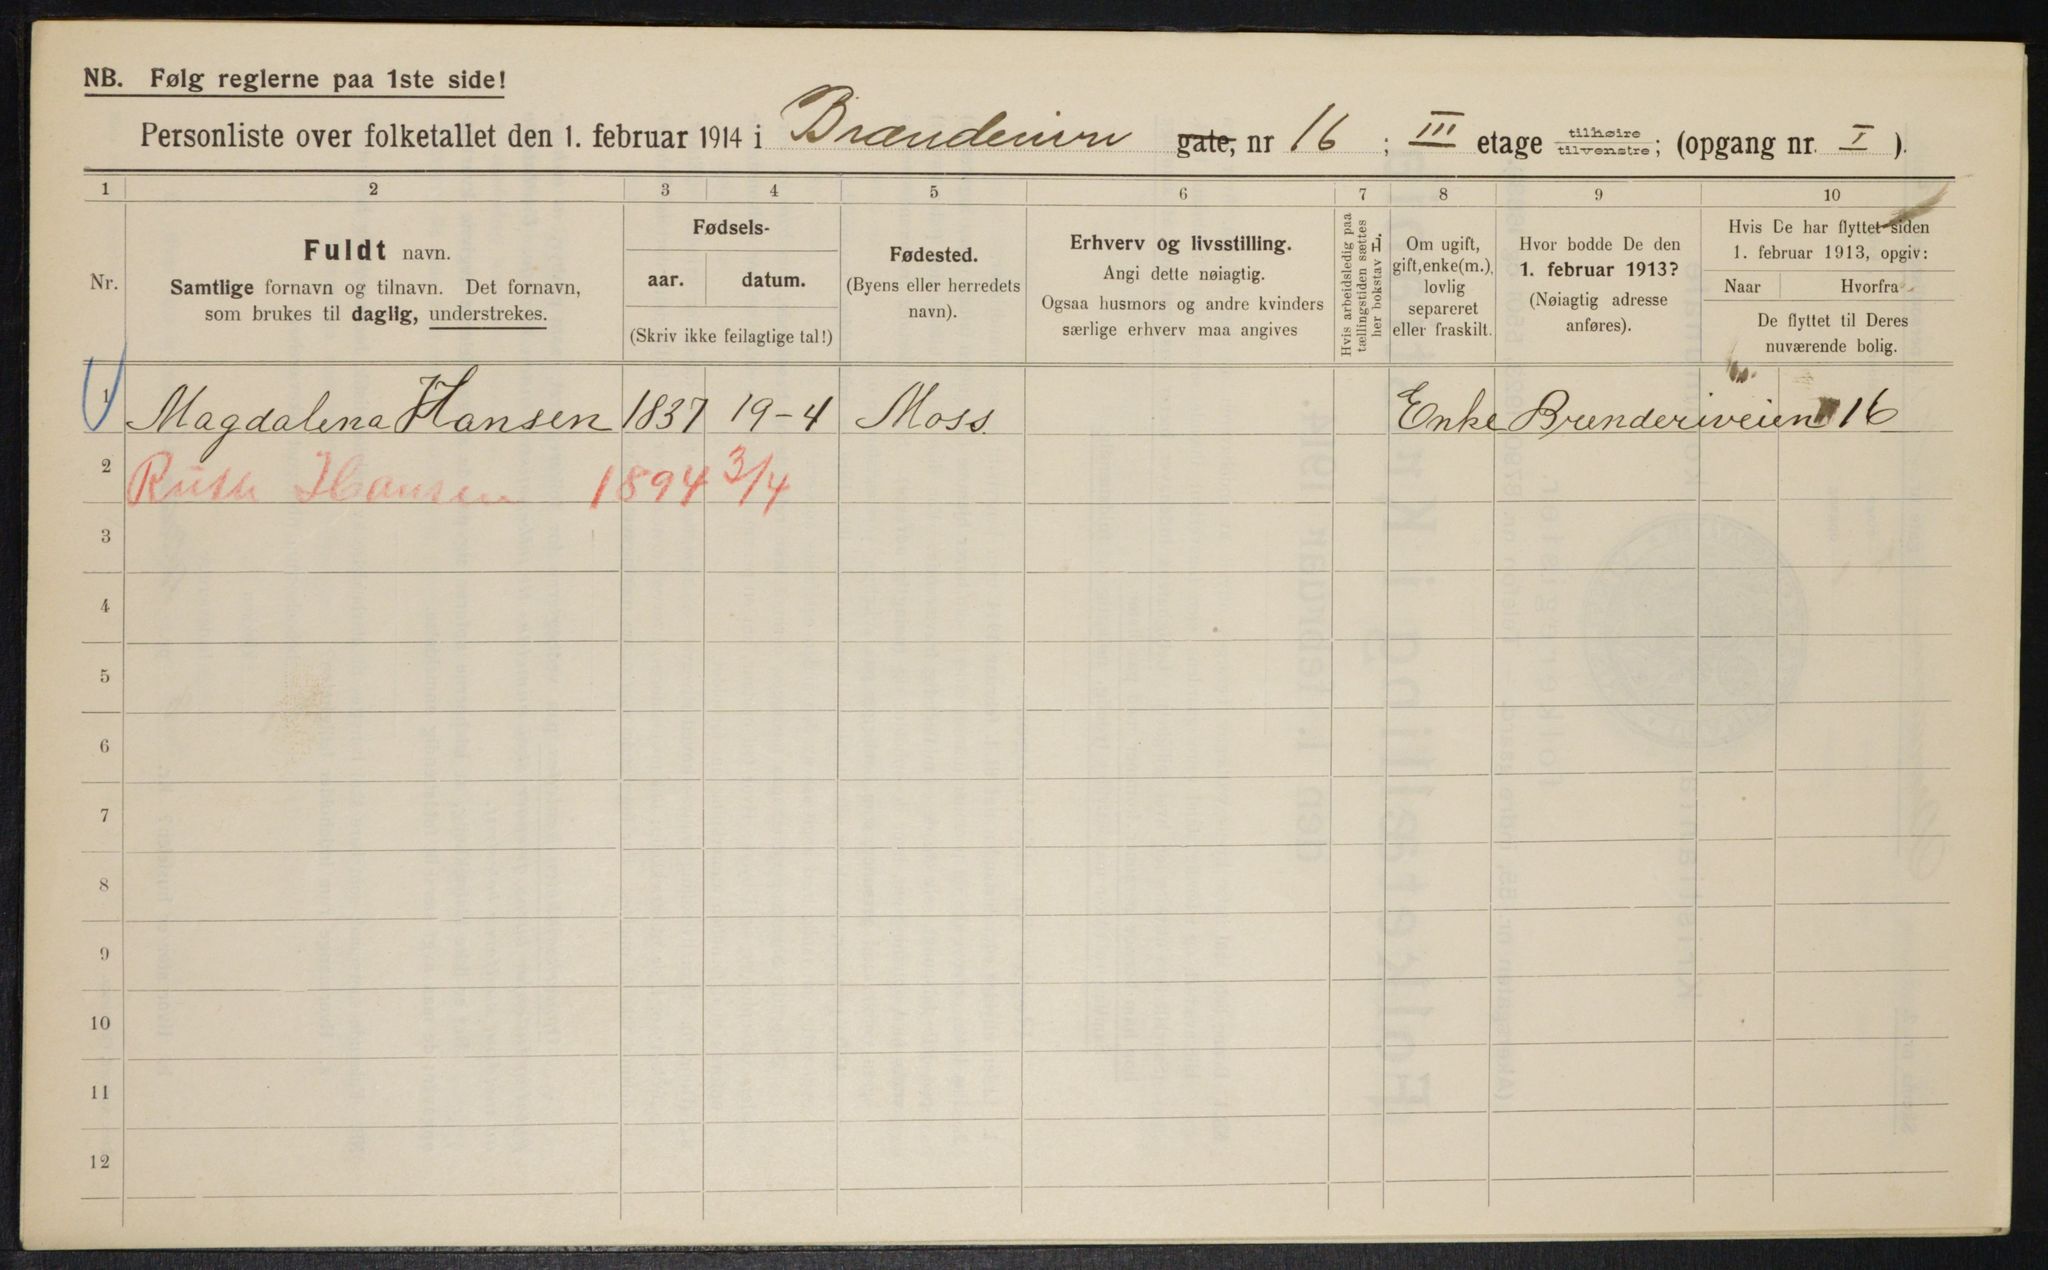 NB. Følg reglerne paa 1ste side!
Personliste over folketallet den 1. februar 1914 i Brænderivn gate, nr 16 ; III etage tilhøire tilvenstre; (opgang nr. I ).
1 2 3 4 5 6 7 8 9 10
Nr.
Fuldt navn.
Samtlige fornavn og tilnavn. Det fornavn,
som brukes til daglig, understrekes.
Fødsels-
aar. datum.
(Skriv ikke feilagtige tal!)
Fødested.
(Byens eller herredets
navn).
Erhverv og livsstilling.
Angi dette nøiagtig.
Ogsaa husmors og andre kvinders
særlige erhverv maa angives
Hvis arbeidsledig paa
tællingstiden sættes
her bokstav L.
Om ugift,
gift, enke(m.),
lovlig
separeret
eller fraskilt.
Hvor bodde De den
1. februar 1913?
(Nøiagtig adresse
anføres).
Hvis De har flyttet siden
1. februar 1913, opgiv:
Naar Hvorfra
De flyttet til Deres
nuværende bolig.
1 Magdalena Hansen 1837 19-4 Moss Enke Brænderiveien 16
2 Ruth Hansen 1894 3/4
3
4
5
6
7
8
9
10
11
12